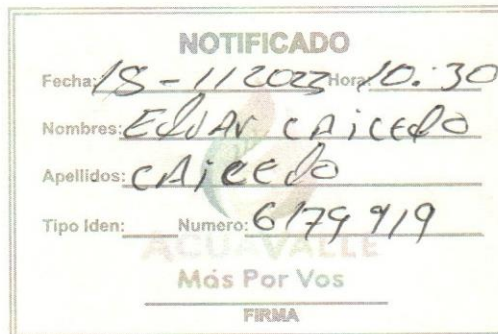 NOTIFICADO
Fecha: 18-11 2023 Hora: 10:30
Nombres: Eduar CAiCEdO
Apellidos: CAiCEdO
Tipo Iden: Numero: 6179919
ACUAVALLE
Más Por Vos
FIRMA